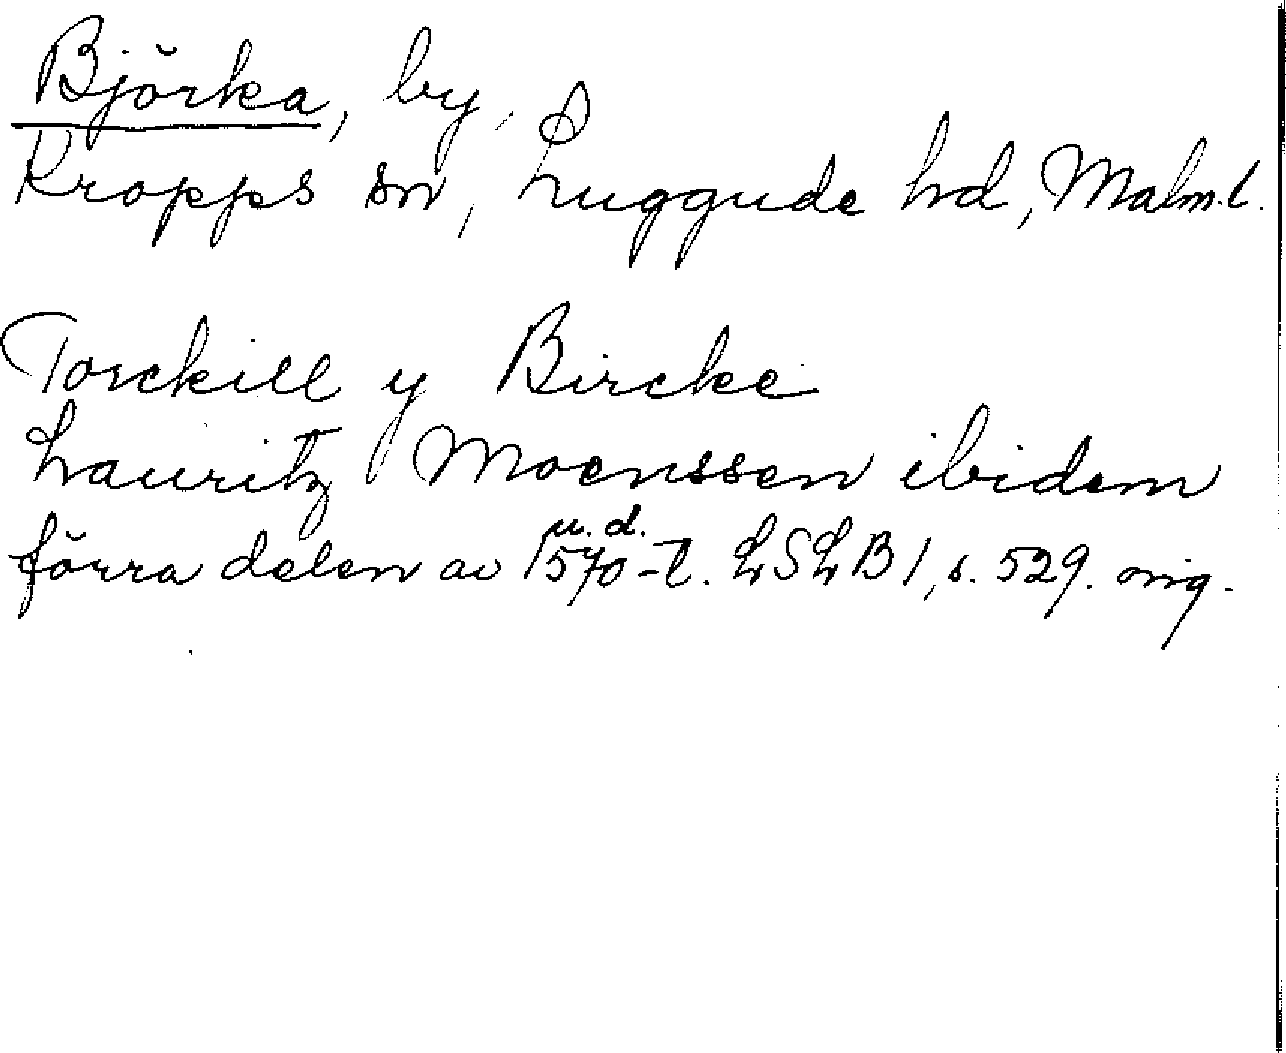 Björka, by,
Kropps sn, Luggude hd, Malm.l.
Torckill y Bircke
Lauritz Moenssen ibidem
u.d.
förra delen av 1570-t. LSLB 1, s. 529. orig.